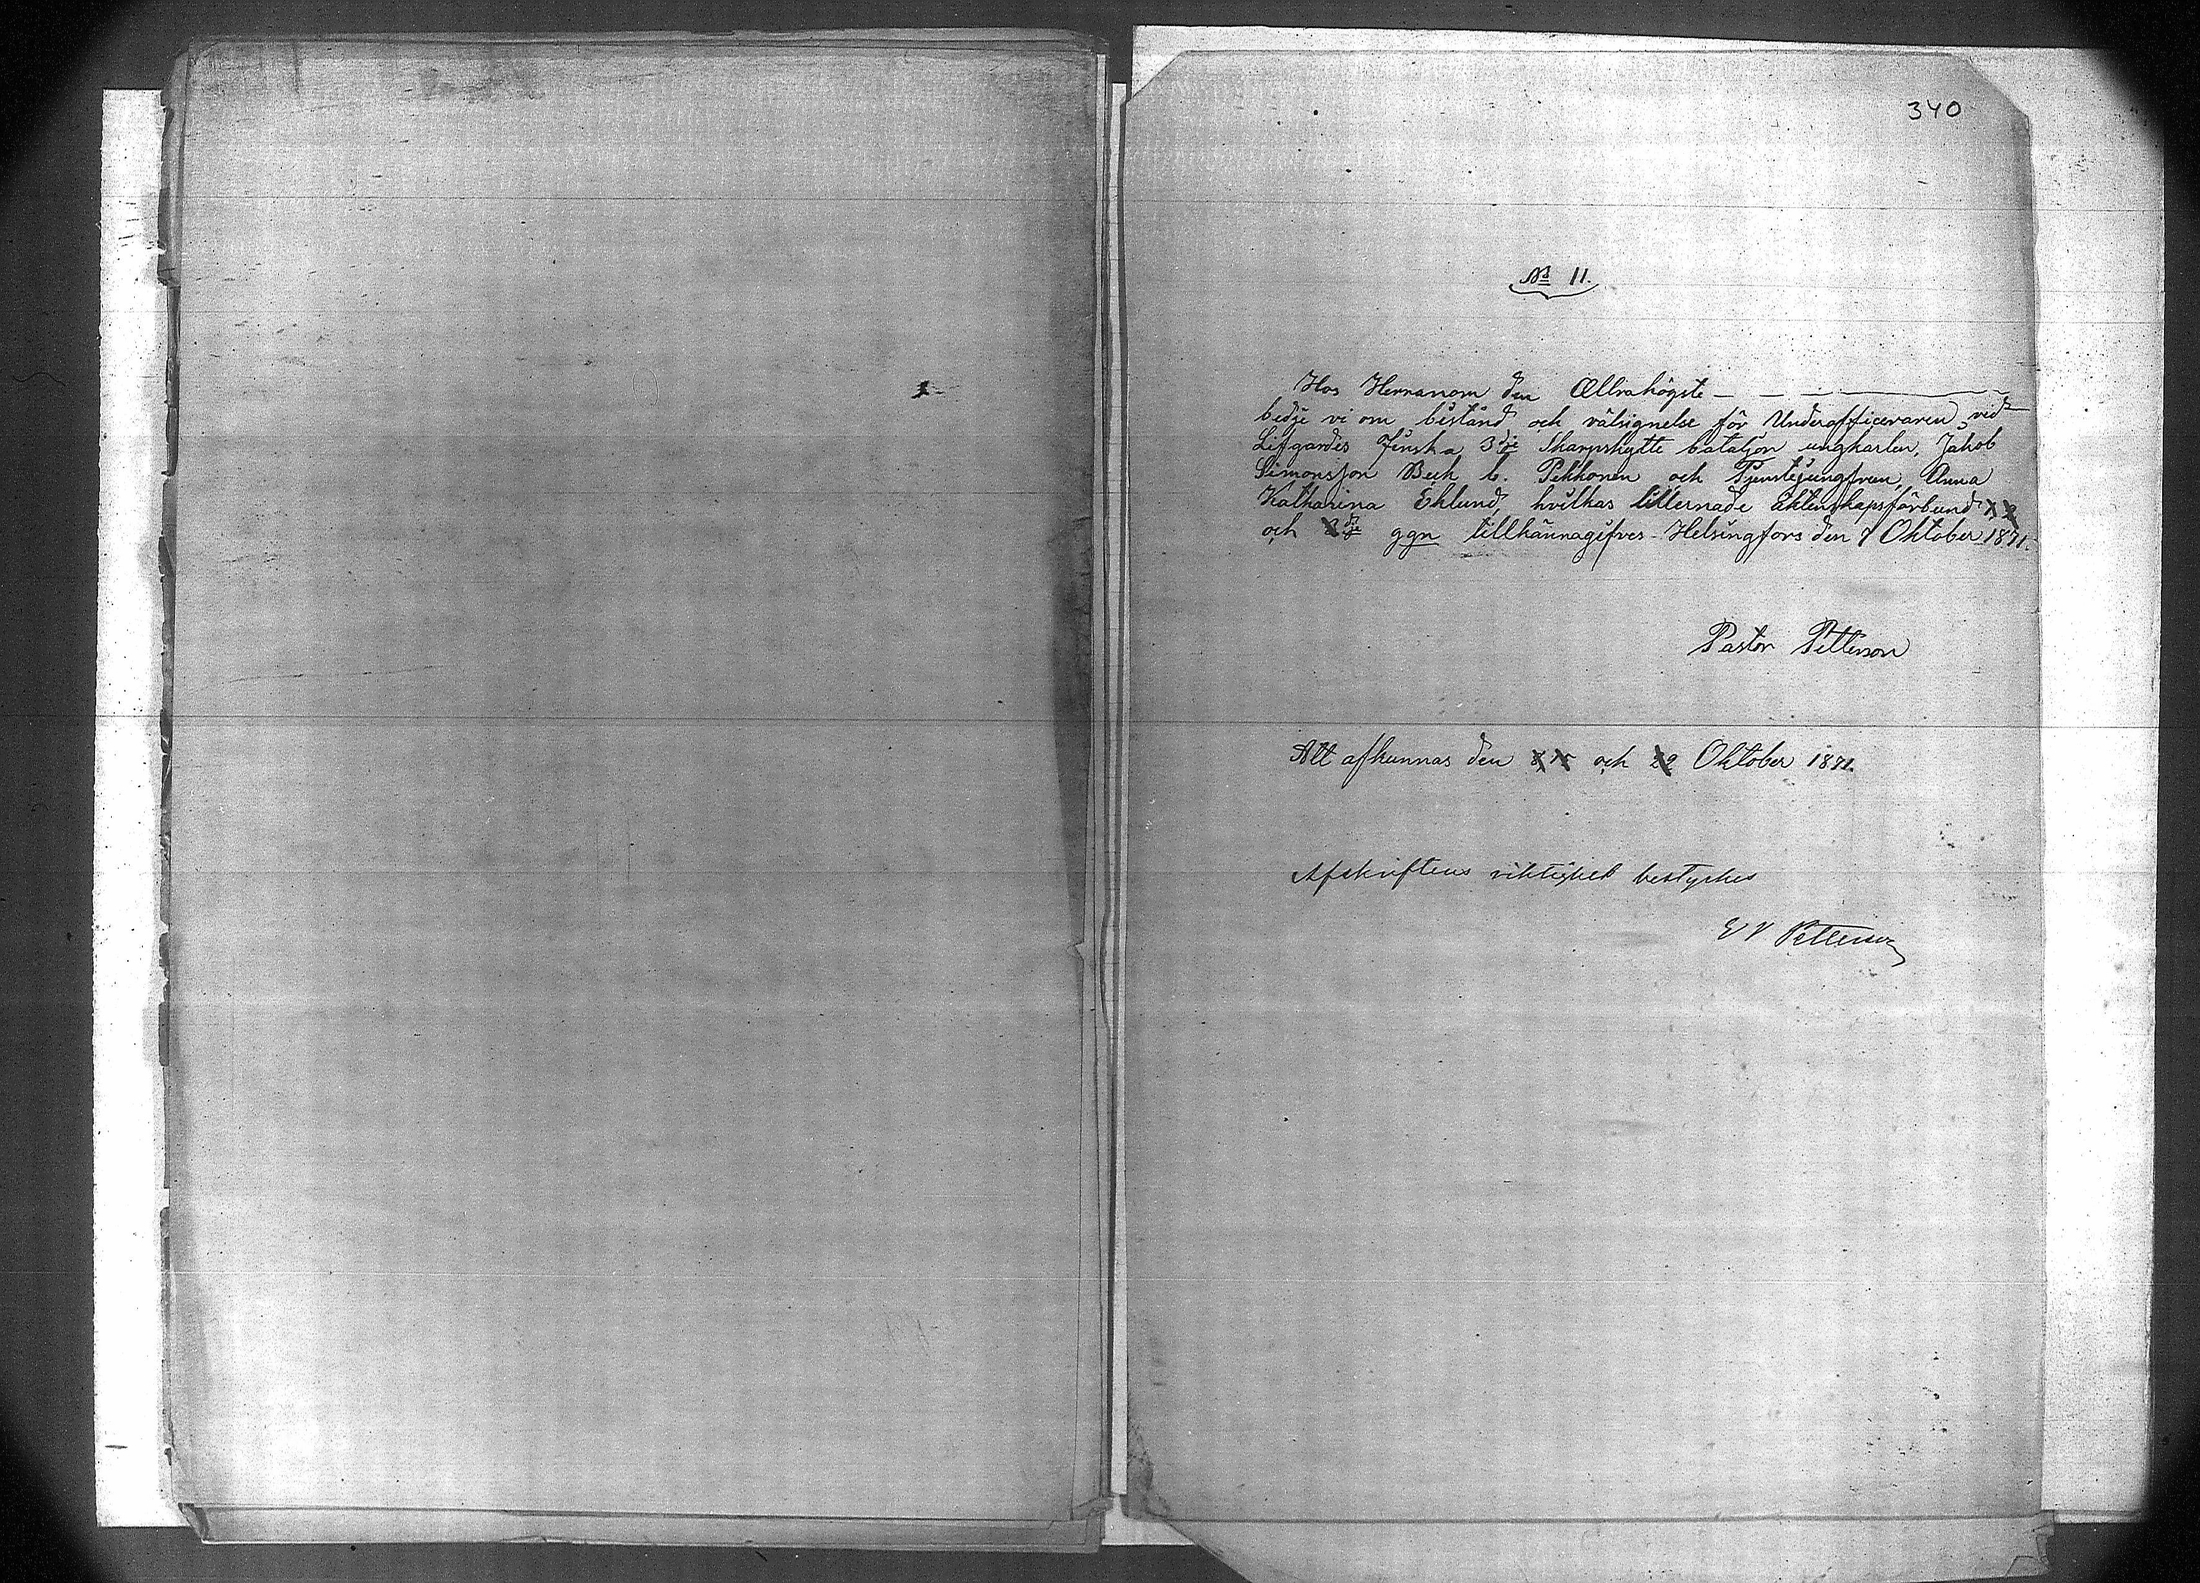 340
No 11.
Hos Herranom den Allrahögste - - - -
bedje vi om bistånd och välsignelse för Underofficeraren vid
Lifgardes Finska 3dje Skarpskytte bataljon ungkarlen, Jakob
Simonsson Beck l. Pekkonen och Tjenstejungfrun, Anna
Katharina Eklund, hvilkas tillernade äktenskapsförbund 1 2
och 3dje ggn tillkännagifves. Helsingfors den 7 Oktober 1871.
Pastor Petterson
Att afkunnas den 8 15 och 22 Oktober 1871.
Afskriftens riktighet bestyrkes
Petterson